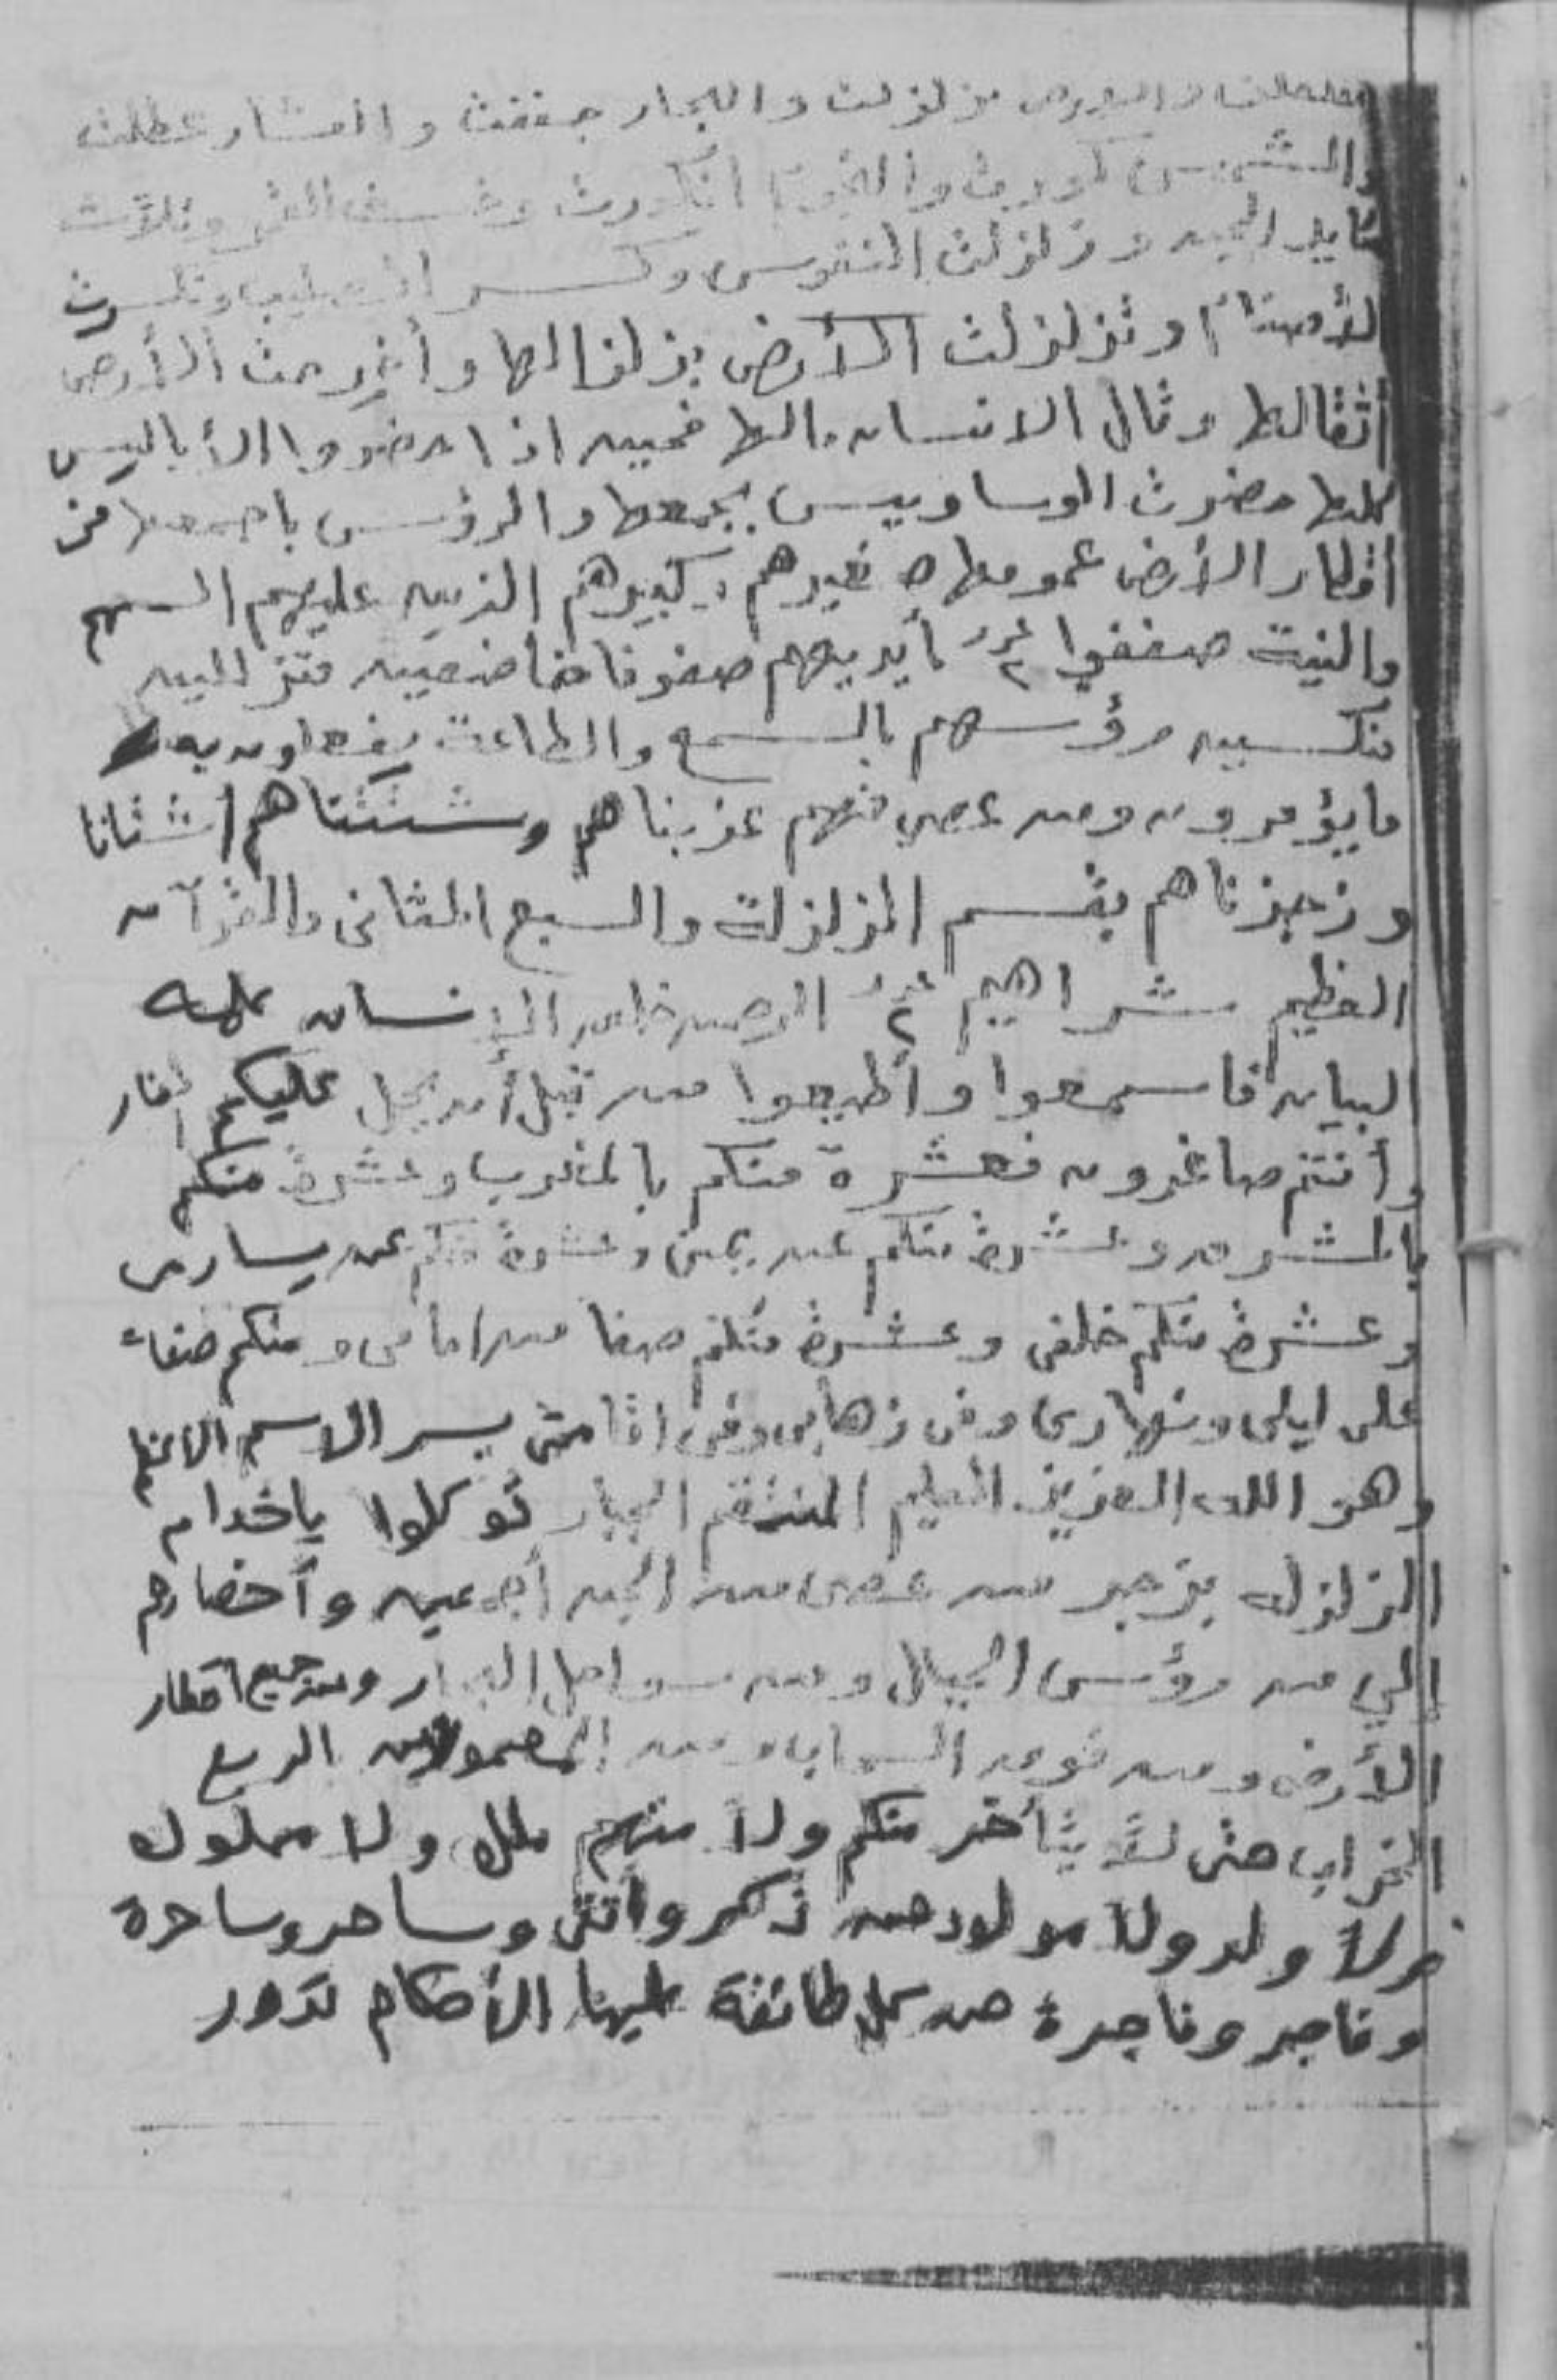 والأرض تزلزلت والبحار جففت والعشار عطلت
والشمس كورت والنجوم انكدرت وخسف القمر وتلاشت
الجن وزلزلت النفوس وكسر الصليب وتكسرت
الأصنام وتزلزلت الأرض بزلزالها وأخرجت الأرض
أثقالها وقال الانسان مالها فحين اذا حضروا الأباليس
كلها حضرت الوساويس بجمعها والرؤس باجمعها من
أقطار الأرض عمومها صغيرهم وكبيرهم الذين عليهم السهم
والنية صففوا بأيديهم صفوفا خاضعين متزالين
منكسين رؤسهم بالسمع والطاعة يفعلون به
ما يؤمرون ومن عصي منهم عذبناهم وشتتناهم أشتاتا
وزجرناهم بقسم الزلزلة والسبع المثاني والقرآن
العظيم شراهيم الرحمن خلق الإنسان علمه
البيان فاسمعوا وأطيعوا من قبل أن يحل عليكم
وأنتم صاغرون فعشرة منكم بالمغرب وعشرة منكم
بالمشرق وعشرة منكم عن يمينى وعشرة منكم عن يسارى
وعشرة منكم خلفى وعشرة منكم صفا من امامى ومنكم
على ليلى ونهارى وفى زهابى وفى اقامتى بسر الاسم الاعظم
وهو الله العزيز العليم المنتقم الجبار توكلوا ياخدام
الزلزلة بزجر من عصى من الجن أجمعين وأحضارهم
إلي من رؤس الجبال ومن سواحل البحار ومن جميع اقطار
الأرض ومن فوق السحاب ومن المعمورين الربع
الخراب حتى لا يتأخر منكم ولا منهم ملك ولا مملوك
ولا ولد ولا مولود من ذكر وأنثى وساحر وساحرة
وفاجر وفاجرة من كل طائفة عليها الأحكام تدور